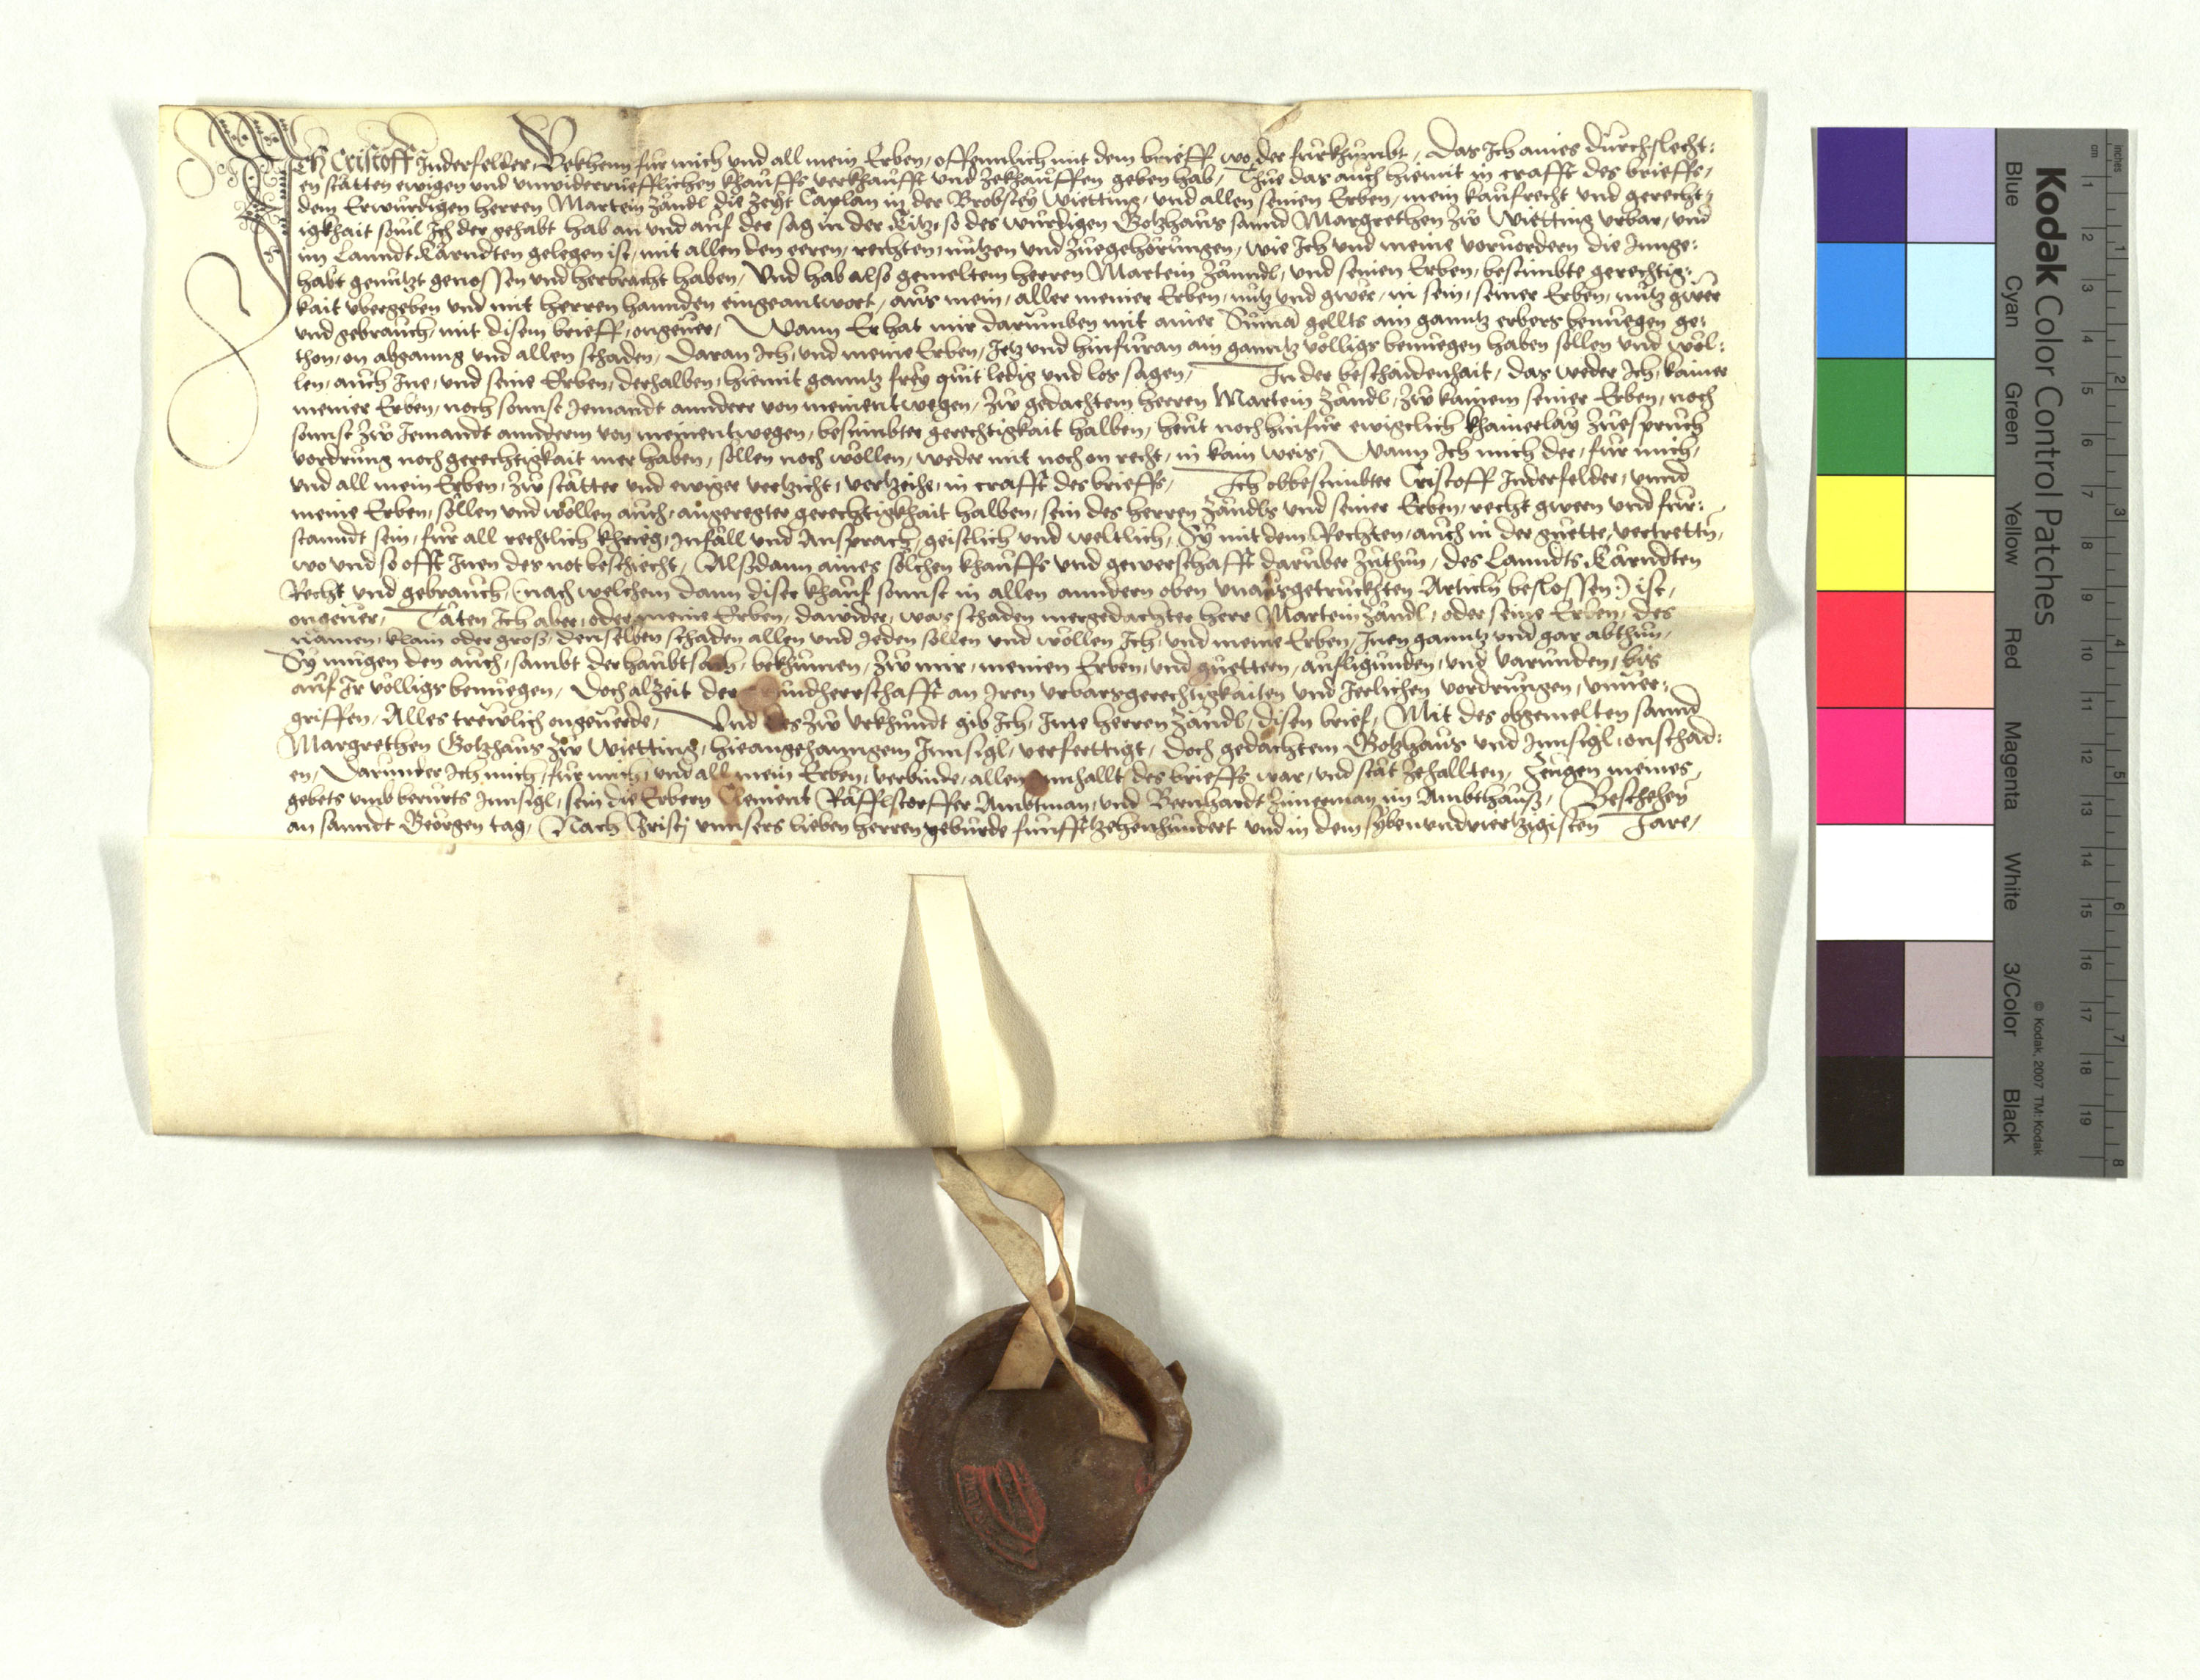 Ich Cristoff Inderfelder, Bekhenn für mich und all mein Erben, offennlich mit dem brieff wo der fürkhumbt, Das Ich aines durchslecht:
en stätten ewigen und unwiderrueflichen khauffs verkhaufft und zekhauffen geben hab, Thue das auch hiemit in crafft des brieffs,
dem Erwürdigen herren Martein Zändl die zeyt Caplan in der Brobstey Wietting, und allen seinen Erben, mein kaufrecht und gerecht:
igkhait sovil Ich der gehabt hab an und auf der sag in der Kitz, so des würdigen Gotzhaus sannd Margrethen zw Wietting urbar, und
im Lanndt Kärndten gelegen ist, mit allen den eeren, rechten, nützen und zuegehörungen, wie Ich und meine vorvordern die Innge:
habt genützt genossen und herbracht haben, Und hab also gemeltem herren Martein Zänndl, und seinen Erben, bestimbte gerechtig:
kait ubergeben und mit herren hannden eingeantwort, aus mein, aller meiner Erben, nutz und gwer, in sein, seiner Erben, nutz gwer
und gebrauch, mit disem brieff, ongever, Wann Er hat mir darumben mit ainer Suma gellts am ganntz erbers benuegen ge:
thon, on abganng und allen schaden, Daran Ich, und meine Erben, Jetz und hinfüran am ganntz völligs benuegen haben sollen und wöl:
len, auch Ine, und seine Erben, derhalben, hiemit ganntz frey quit ledig und los sagen, In der beschaidenhait, das weder Ich, kainer
meiner Erben, noch sonnst Jemandt annderr von meinent wegen, zw gedachtem herren Martein Zändl, zw kainem seiner Erben, noch
sonnst zw Jemandt annderm von meinentwegen, bestimbter gerechtigkait halben, heut noch hinfür ewigclich khainerlay zuespruch
vordrung noch gerechtigkait mer haben, sollen noch wöllen, weder mit noch on recht, in kain weis, Wann Ich mich der, für mich,
und all mein Erben, zw stätter und ewiger verzicht, verzeihe, in crafft des brieffs, Ich obbestimbter Cristoff Inderfelder, unnd
meine Erben, sollen und wöllen auch, angeregter gerechtigkhait halben, sein des herren Zändls und seiner Erben, recht gwern und für:
stanndt sein, für all rechtlich khrieg, Infäll und Ansprach, geistlich und weltlich, Sy mit dem Rechten, auch in der guette, vertrettn,
wo und so offt Inen des not beschiecht, Alsdann aines solchen khauffs und gewerschafft darüber zuthun, des Lanndts Kärndten
Recht und gebrauch, (nach welchem dann diser khauf sonnst in allen anndern oben unausgetruckhten Articln beslossen) ist,
ongever, Täten Ich aber, oder meine Erben, dawider, was schaden mergedachter herr Martein Zändl, oder seine Erben, des
namen, klain oder gross, denselben schaden allen und Jeden sollen und wöllen Ich, und meine Erben, Inen ganntz und gar abthun,
Sy mügen den auch, sambt der haubtsach, bekhumen, zw mir, meinen Erben, und guettern, aufligunden, und varunden, bis
auf Ir völligs benuegen, Doch alzeit der Grundherrschafft an Iren urbarsgerechtigkaiten und Jerlichen vordrungen, unver:
griffen, Alles treulich ongeverde, Und des zw urkhundt gib Ich, Ime herren Zändl, disen brief, Mit des obgemelten sannd
Margrethen Gotzhaus zw Wietting, hieangehanngem Innsigl, verferttigt, doch gedachtem Gotzhaus und Innsigl, onschad:
en, Darunder Ich mich, für mich, und all mein Erben, verbinde, allen Innhallt des brieffs war, und stät zehallten, Zeugen meines
gebets umb berürts Innsigl, sein die Erbern Clement Räfflstorffer Ambtman, und Bernhardt Zimerman im Ambthaus, Beschehen
an sanndt Georgen tag, Nach Cristj unnsers lieben herren geburde fünfftzehenhundert und in dem sybenundviertzigisten Jare,
Kodak Color Control Patches
Blue Cyan Green Yellow Red Magenta White 3/Color Black
© Kodak, 2007 TM: Kodak
cm 1 2 3 4 5 6 7 8 9 10 11 12 13 14 15 16 17 18 19
inches 1 2 3 4 5 6 7 8